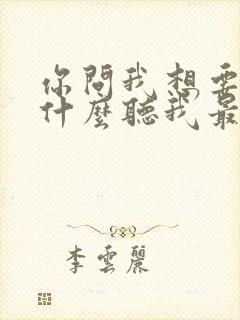 你問我想要
什麼聽我最
李雲麗